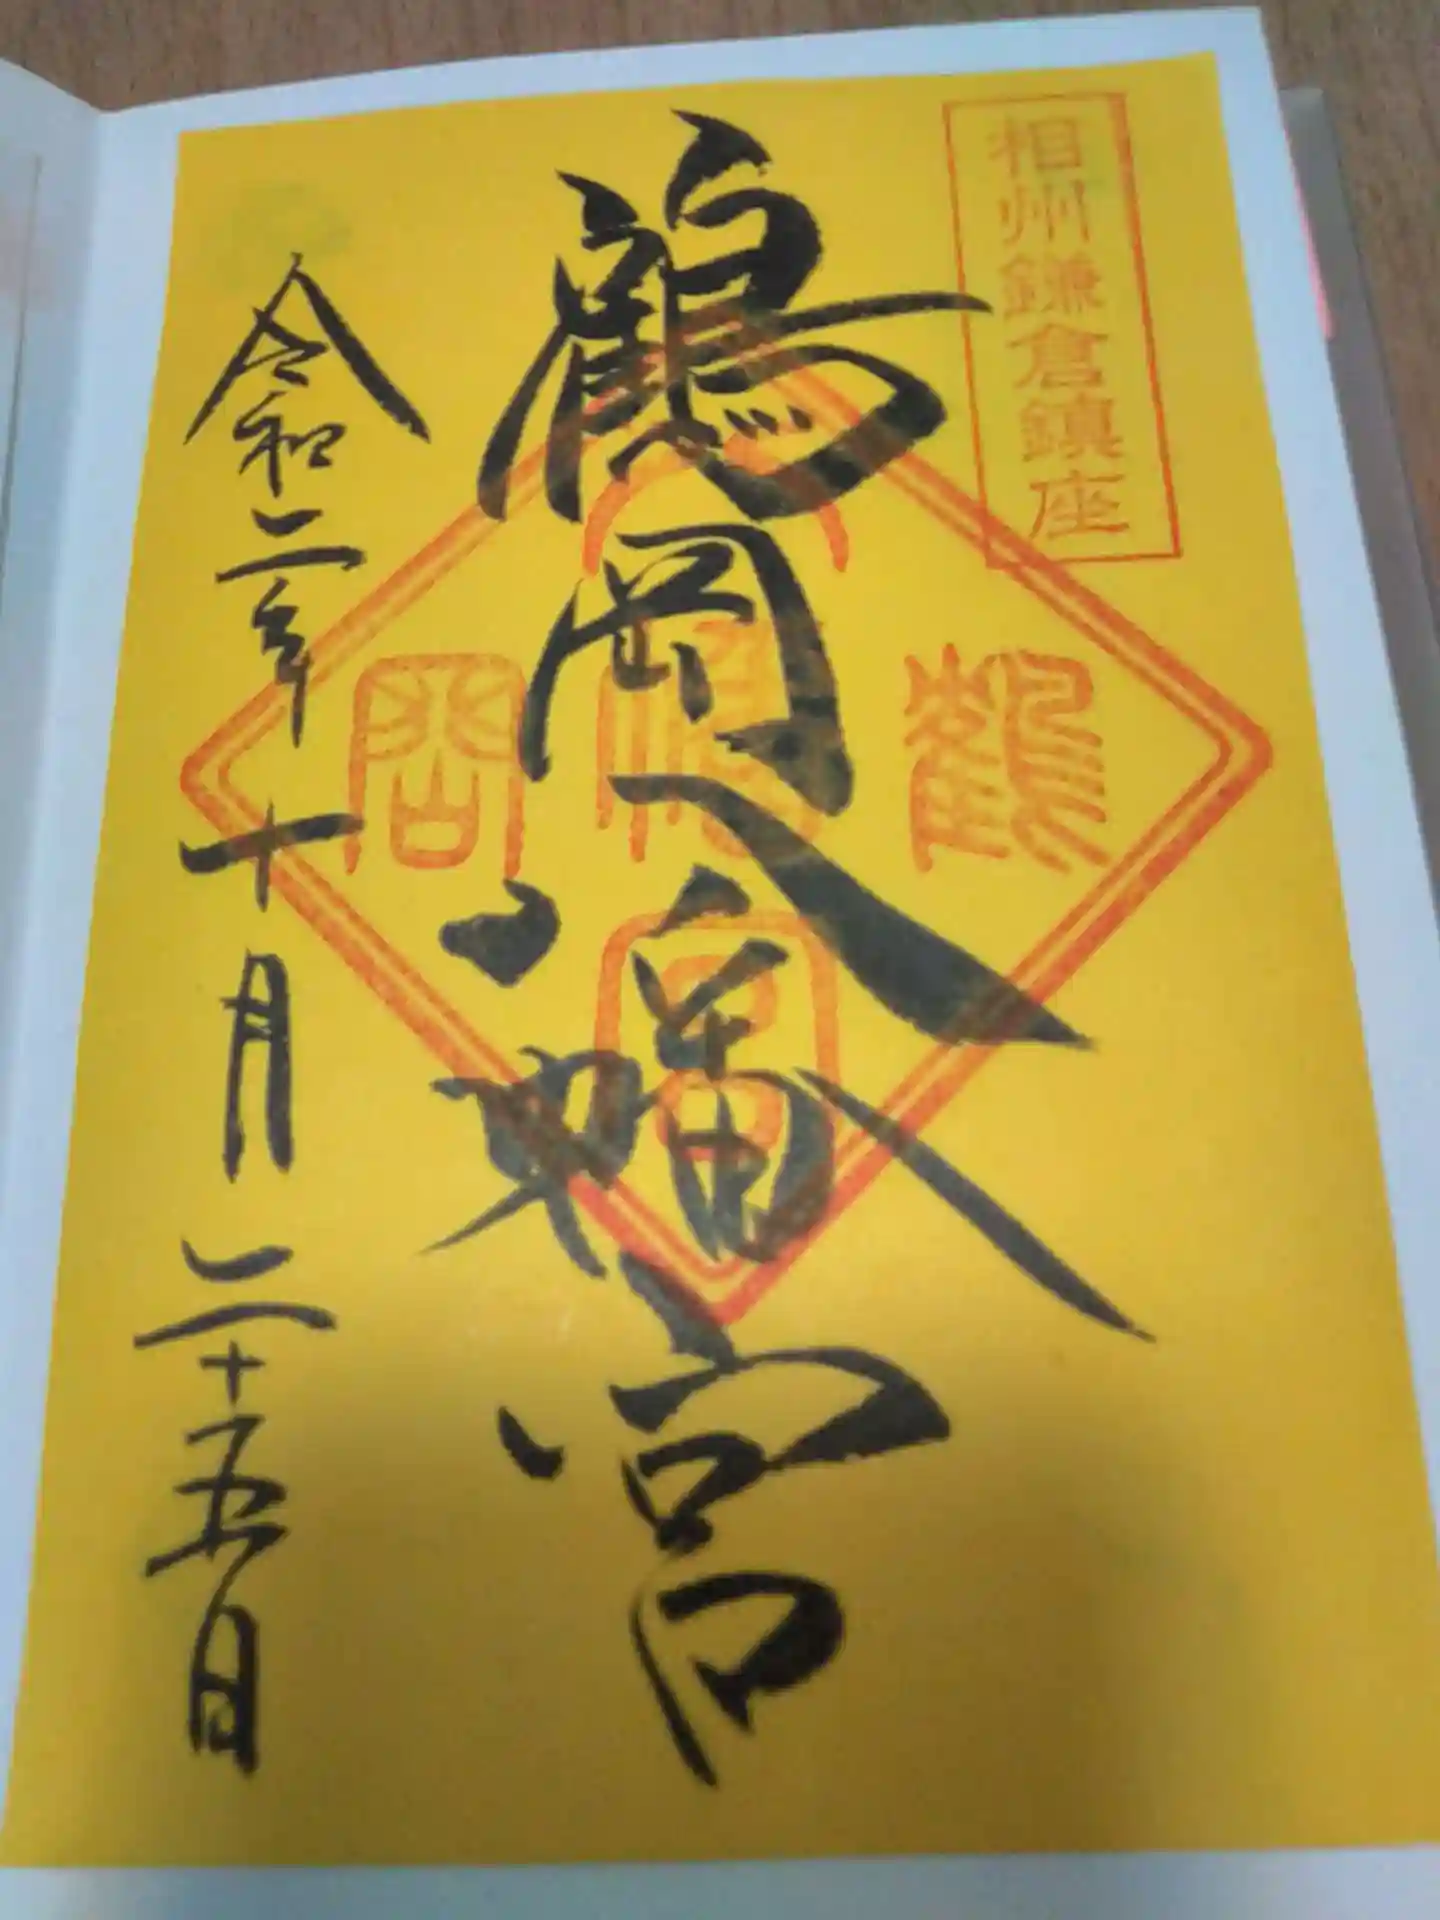 相州鎌倉鎮座
鶴岡八幡宮
鶴
岡
八
幡
宮
令和二年十月二十五日